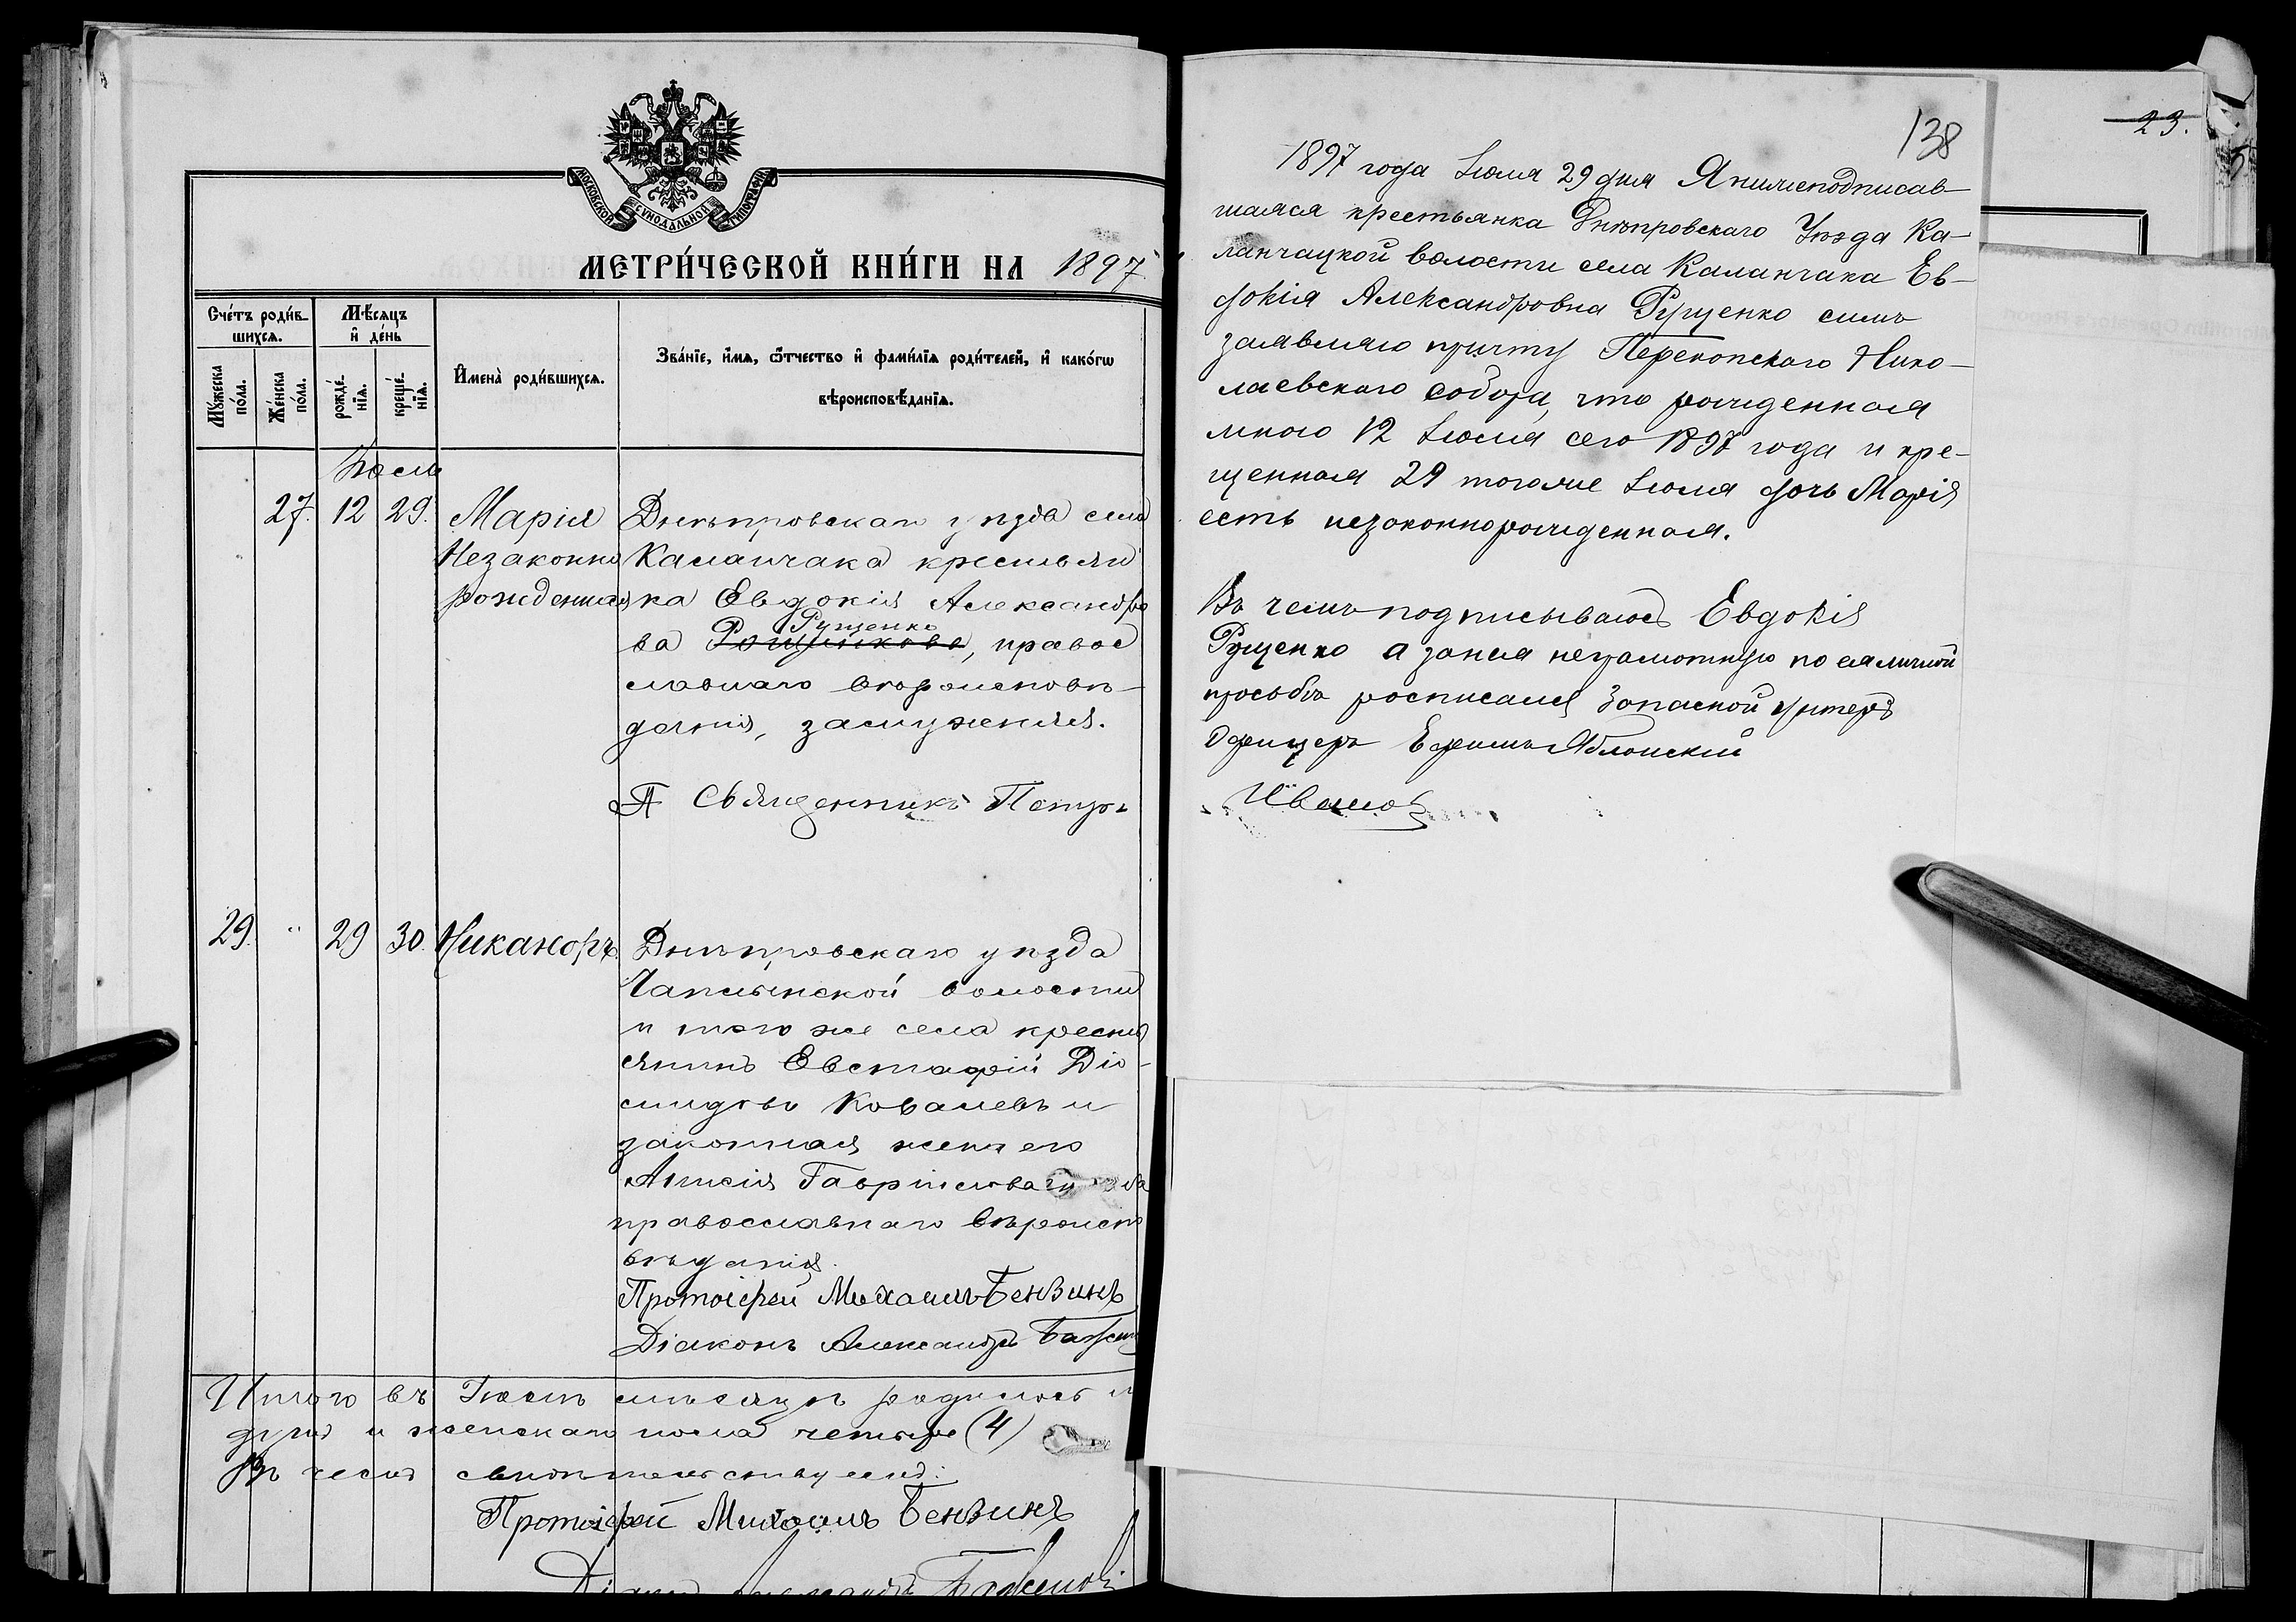 МОСКОВСКОЙ СѴНОДАЛЬНОЙ ТИПОГРАФІИ
МЕТРИ́ЧЕСКОЙ КНИ́ГИ НА 1897
Сче́тъ роди́в-
шихся.
Мѣ́сяцъ
и де́нь
Му́жеска
по́ла.
Же́нска
по́ла.
рожде́-
нія.
креще́-
нія.
Имена̀ роди́вшихся.
Зва́ніе, и́мя, ѻ́тчество и фами́лія роди́телей, и како́гѡ
вѣроисповѣ́данія.
Іюля
27. 12 29. Марія Днѣпровскаго уѣзда села
Незаконно Каланчака крестьян
рожденная ка Евдокія Александро
Рущенко
ва, правос
славнаго вѣроисповѣ-
данія, замужняя.
Священникъ Петръ
29. " 29 30. Никаноръ Днѣпровскаго уѣзда
Чаплынской волости
и того же села кресть
янинъ Евстафій Діо-
мидовъ Ковалевъ и
законная жена его
Анисія Гавріилова
православнаго вѣроиспо
вѣданія.
Протоіерей Михаилъ Бензинъ
Діаконъ Александръ Баженов
Итого въ Іюлѣ мѣсяцѣ родилось м
другъ и женскаго пола четыре (4)
Въ чемъ свидѣтельствуемъ:
Протоіерей Михаилъ Бензинъ
Діаконъ Александръ Баженовъ
23.
138
1897 года Іюля 29 дня Я нижеподписав-
шаяся крестьянка Днѣпровскаго Уѣзда Ка-
ланчацкой волости села Каланчака Ев-
докія Александровна Рущенко симъ
заявляю причту Перекопскаго Нико-
лаевскаго собора, что рожденная
мною 12 Іюля сего 1897 года и кре-
щенная 29 тогоже Іюля дочь Марія
есть незаконнорожденная.
Въ чемъ подписываюсь Евдокія
Рущенко а занея неграмотную по еяличной
просьбѣ росписался Запасной Унтеръ
Офицеръ Ефимъ Яблонскій
Иванов